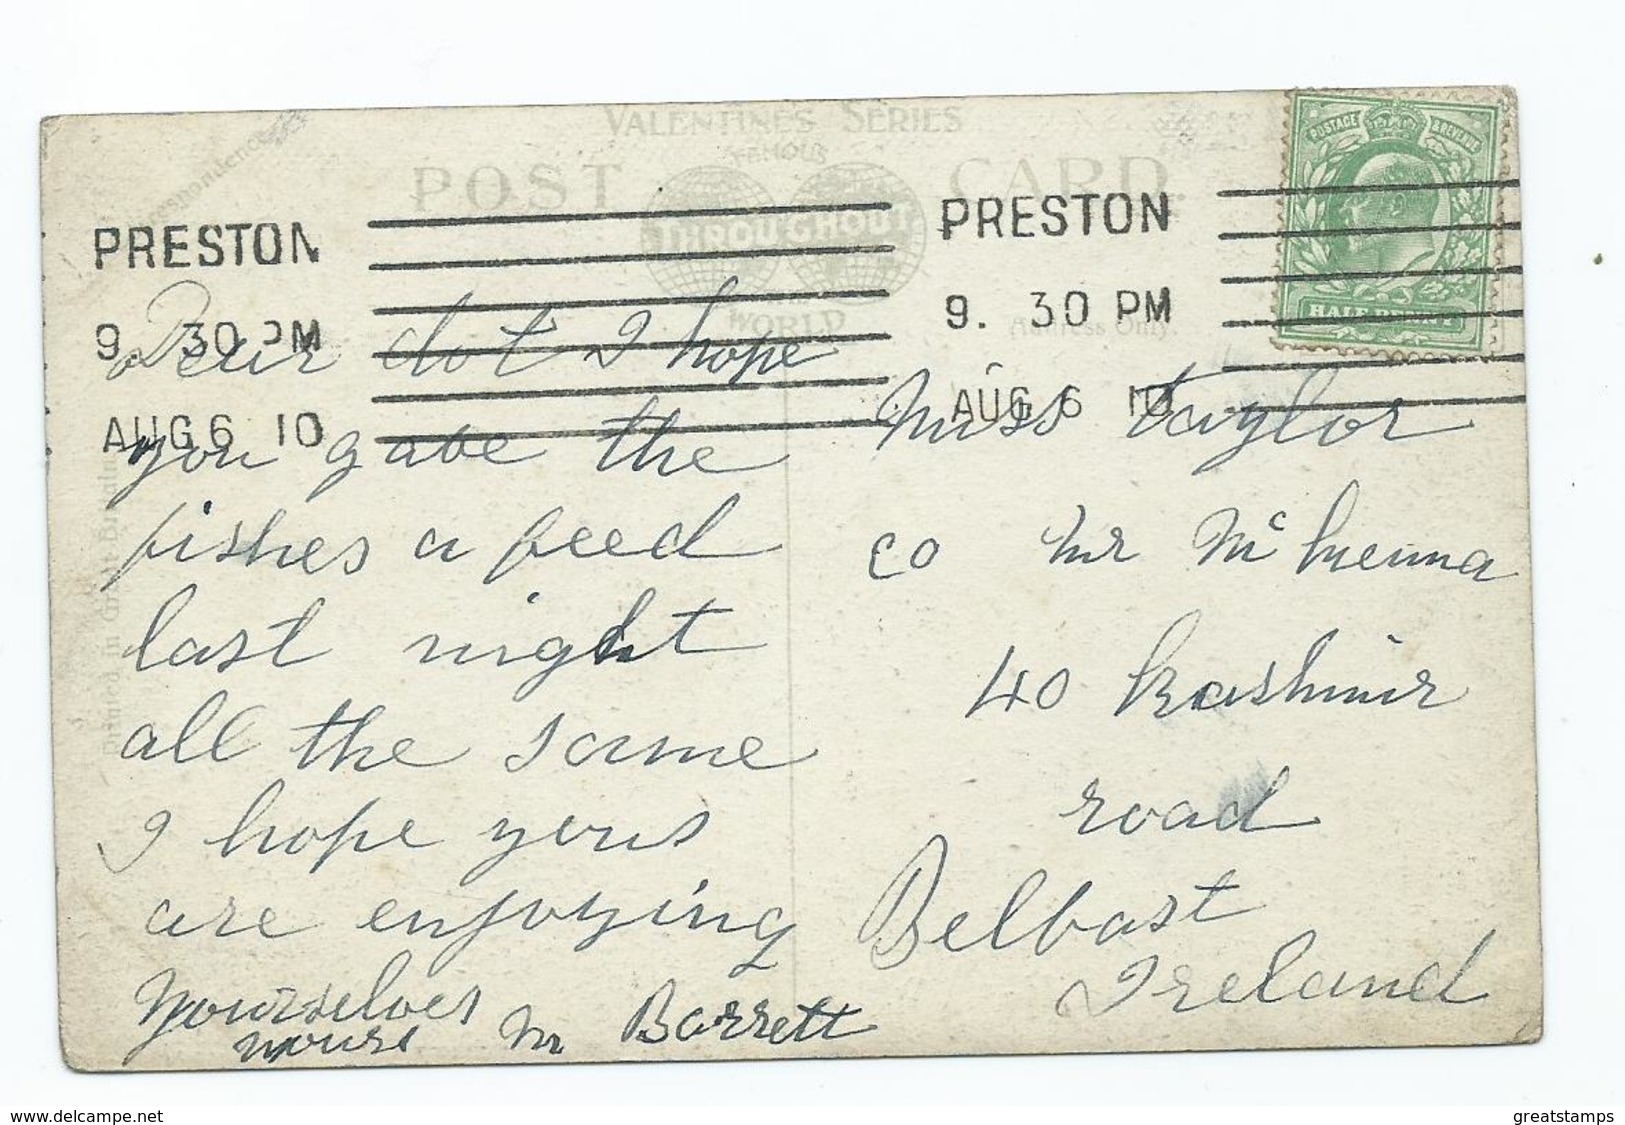 Correspondence
VALENTINES SERIES
FAMOUS
POST CARD
THROUGHOUT
WORLD
Address Only.
Printed in Great Britain
POSTAGE & REVENUE
HALF PENNY
PRESTON
9. 30 PM
AUG 6 10
PRESTON
9. 30 PM
AUG 6 10
Dear dot I hope
you gave the
fishes a feed
last night
all the same
I hope yous
are enjoying
yourselves
yours M Barrett
Miss Taylor
co Mr
40 Kashmir
road
Belfast
Ireland
http://www.delcampe.net
greatstamps